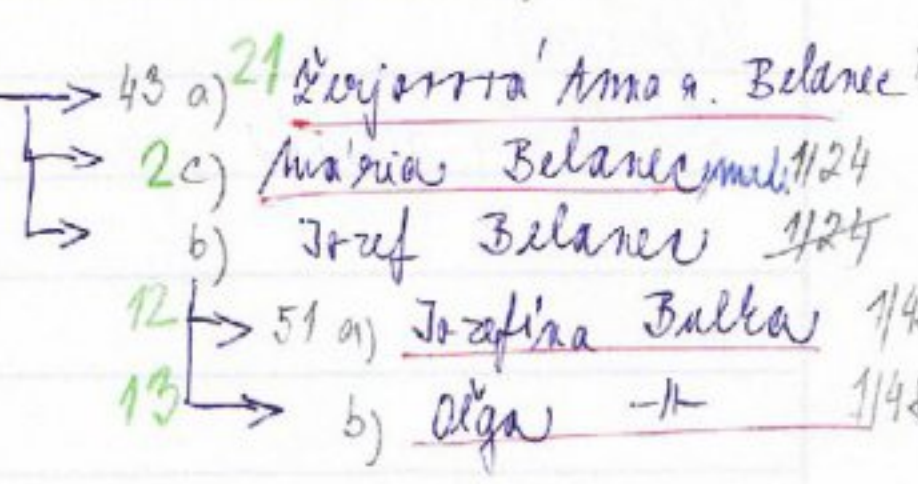 43 a) 21 Žerjavová Anna r. Belanec
2 c) Mária Belanec 1/24
b) Jozef Belanec 1/24
12 51 a) Jozefína Bulka 1/4
13 b) Oľga -||- 1/48